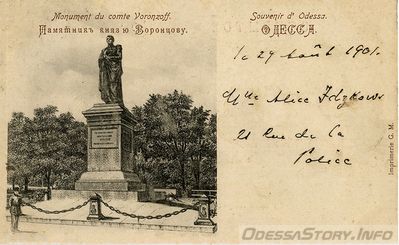 Monument du comte Voronzoff.
Памятникъ князю Воронцову.
Souvenir d' Odessa.
ОДЕССА.
le 29 août 1901.
Mlle Alice
21 Rue de la
Police
Imprimerie G. M.
OdessaStory.Info